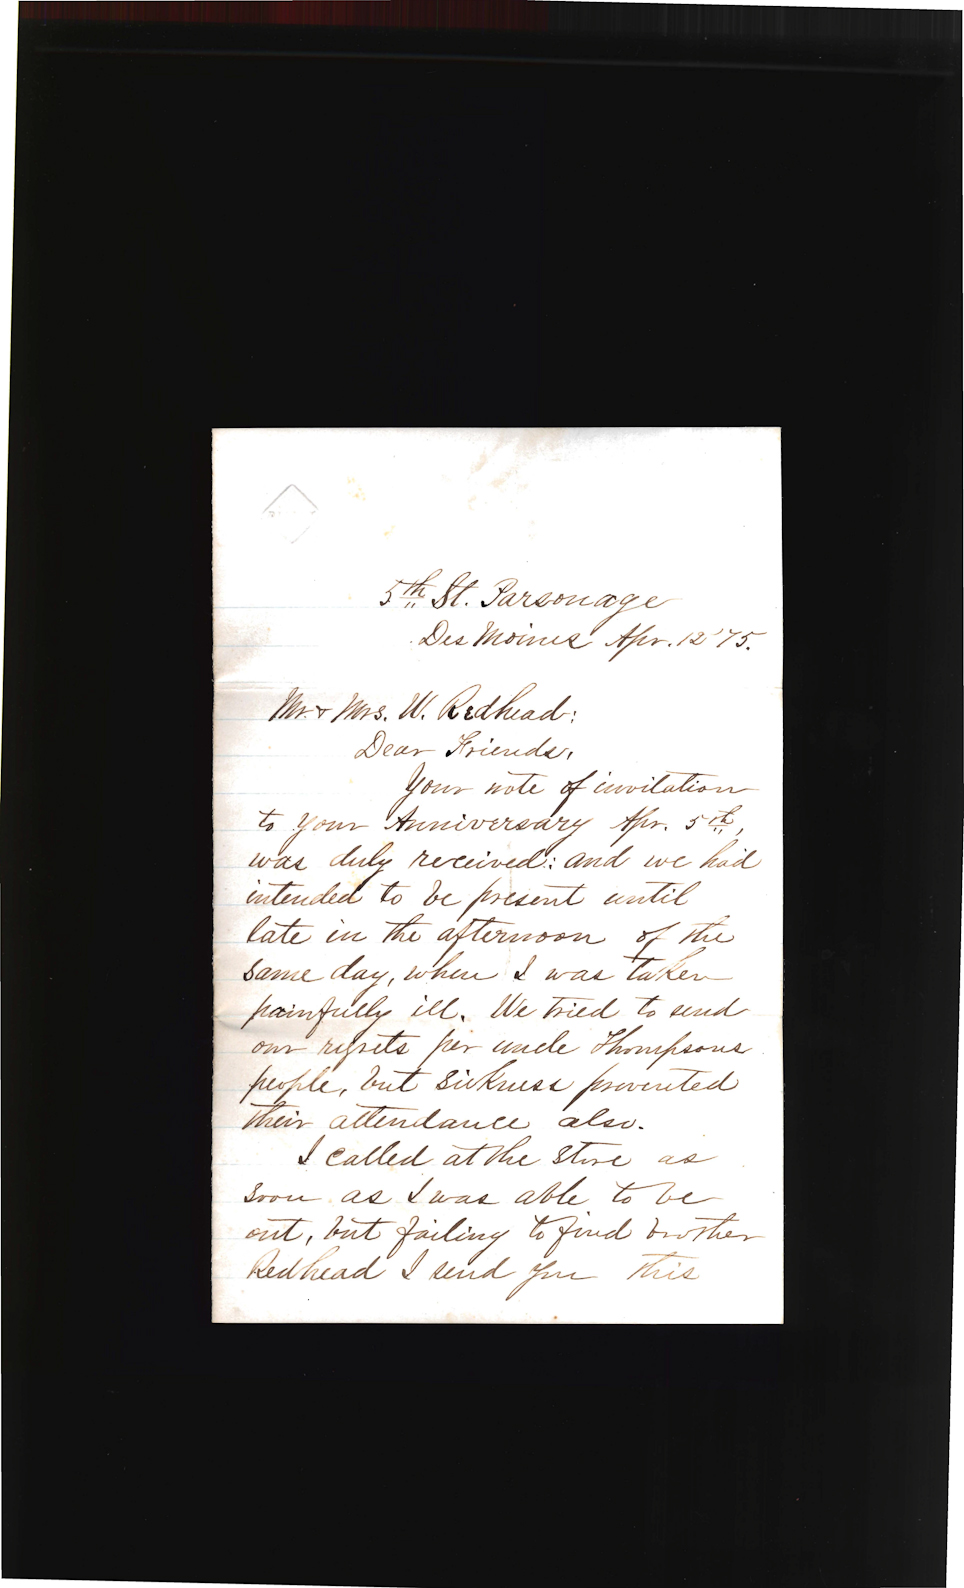 5th St. Parsonage
Des Moines Apr. 12 '75.
Mr. & Mrs. W. Redhead:
Dear Friends,
Your note of invitation
to your Anniversary Apr. 5th,
was duly received: and we had
intended to be present until
late in the afternoon of the
same day, when I was taken
painfully ill. We tried to send
our regrets per uncle Thompsons
people, but sickness prevented
their attendance also.
I called at the store as
soon as I was able to be
out, but failing to find brother
Redhead I send you this